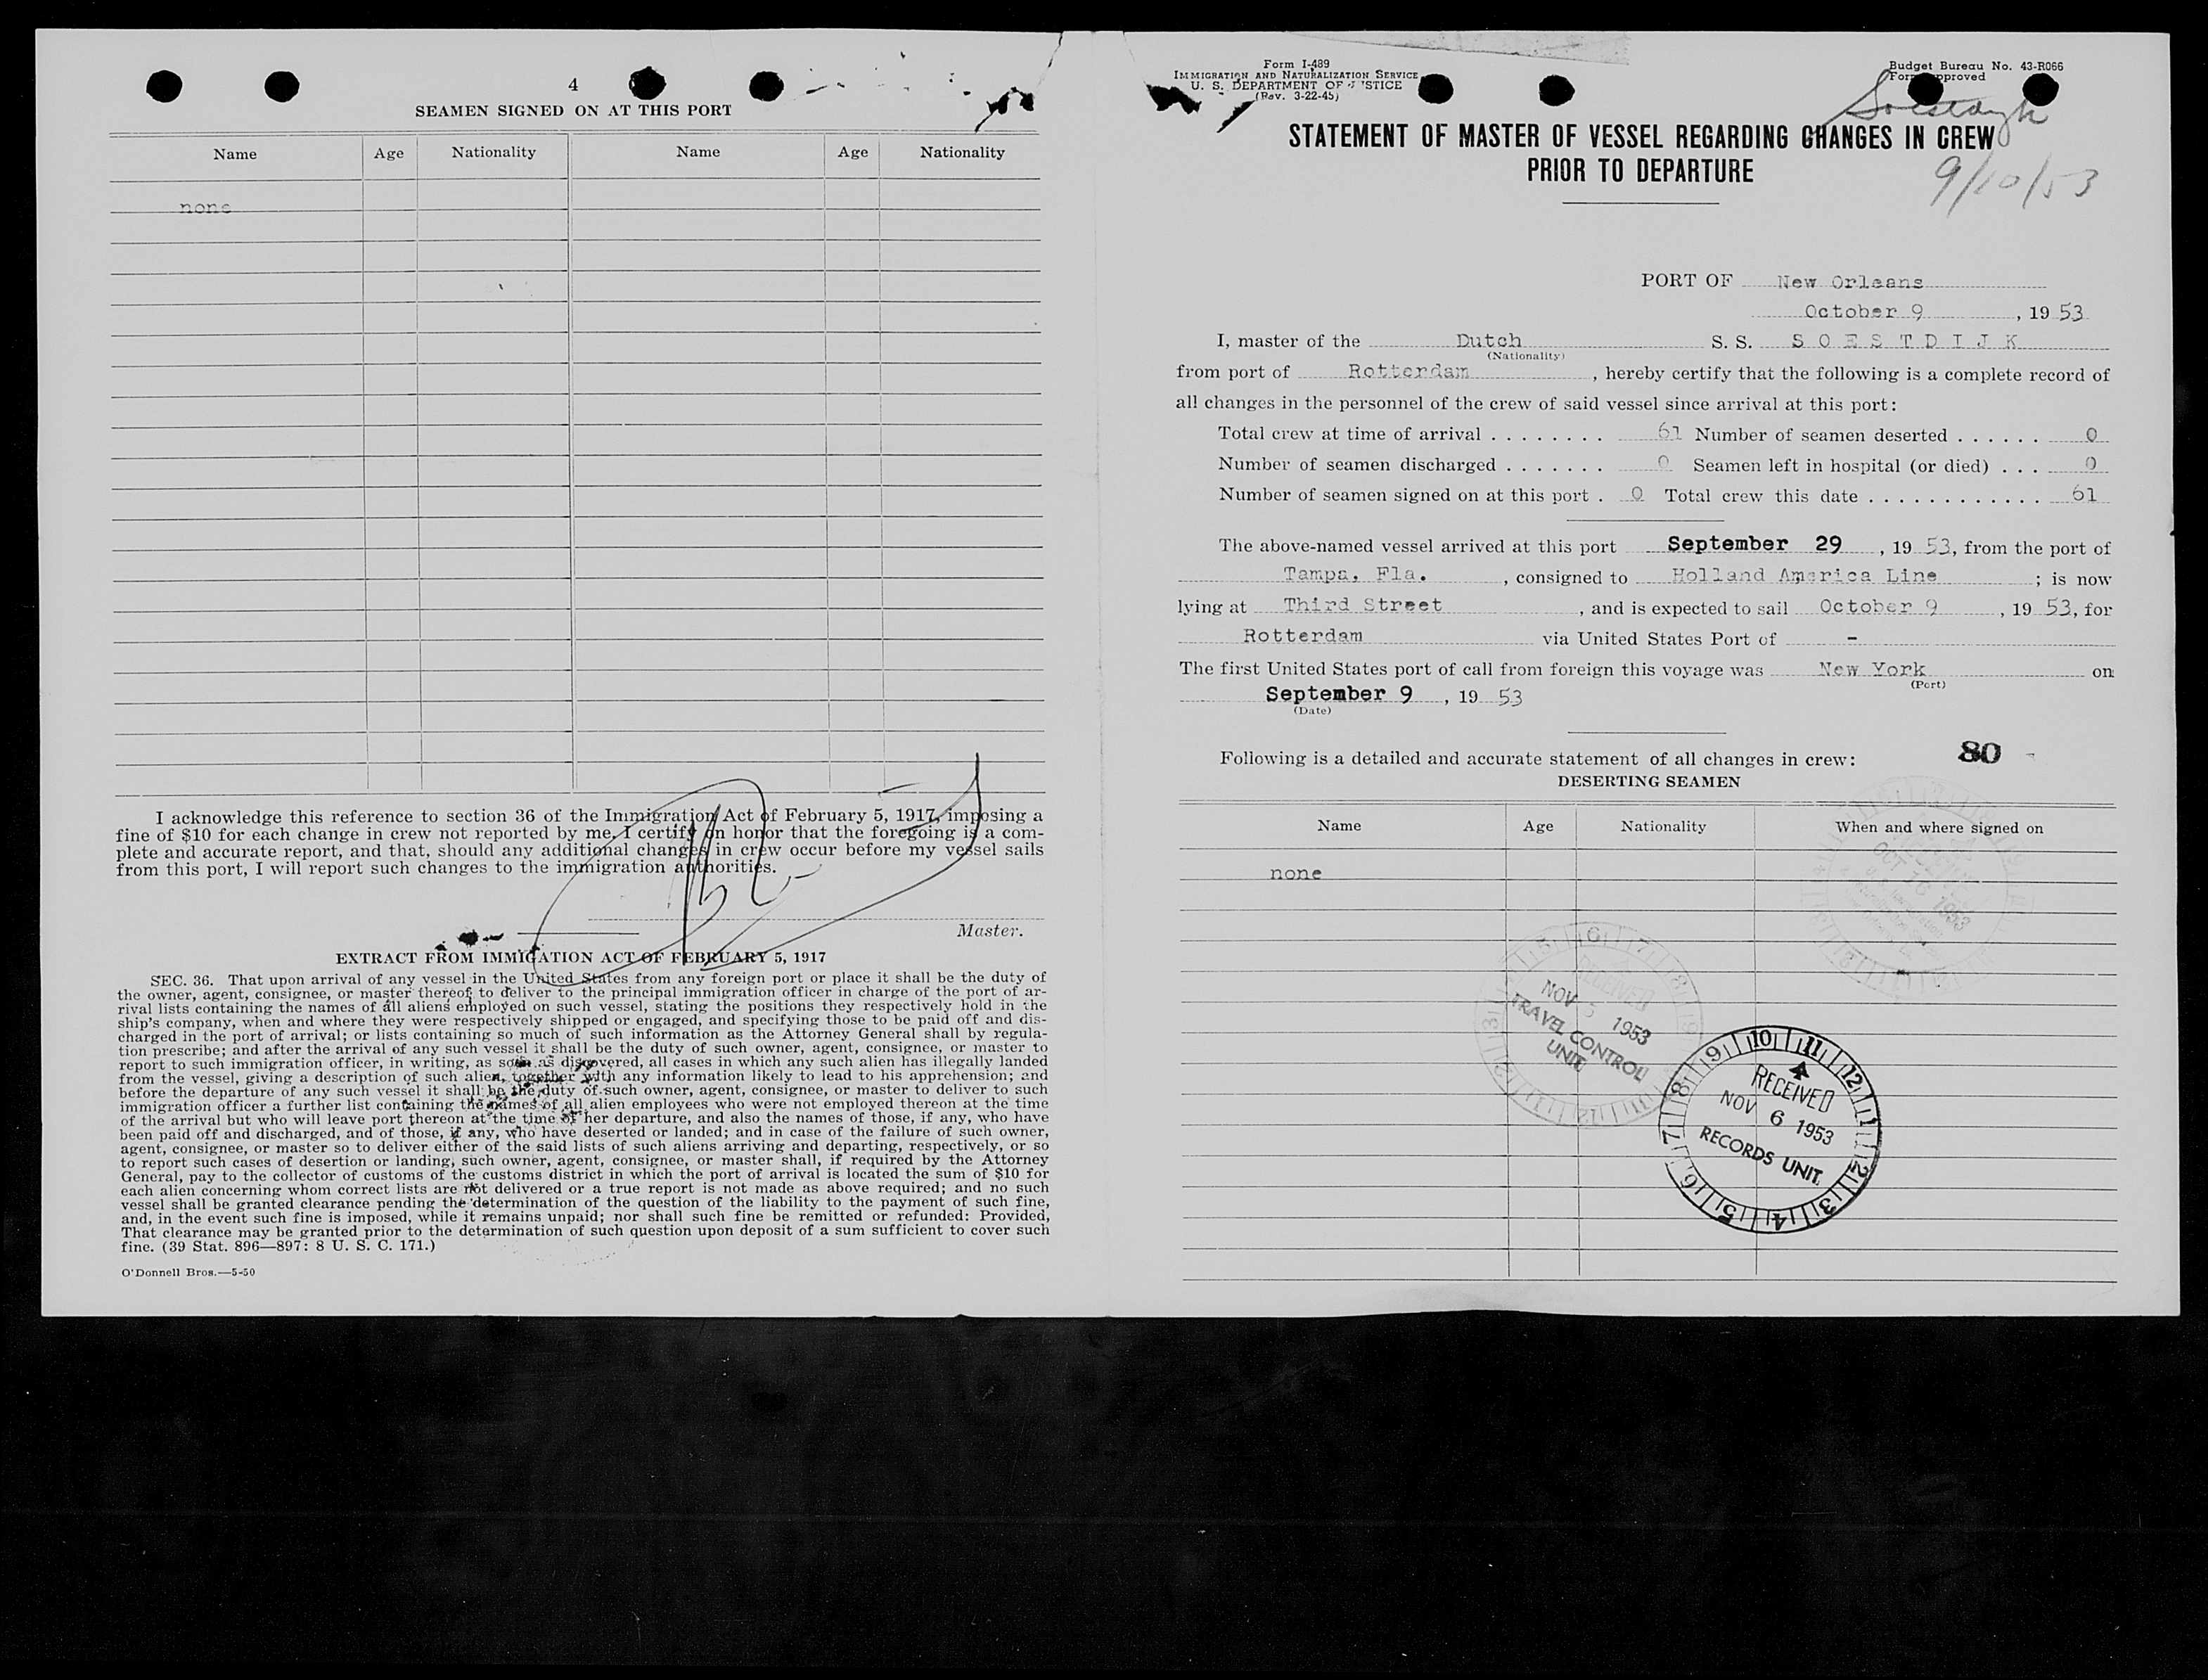 4
SEAMEN SIGNED ON AT THIS PORT
Name Age Nationality Name Age Nationality
none
I acknowledge this reference to section 36 of the Immigration Act of February 5, 1917, imposing a
fine of $10 for each change in crew not reported by me. I certify on honor that the foregoing is a com-
plete and accurate report, and that, should any additional changes in crew occur before my vessel sails
from this port, I will report such changes to the immigration authorities.
Master.
EXTRACT FROM IMMIGATION ACT OF FEBRUARY 5, 1917
SEC. 36. That upon arrival of any vessel in the United States from any foreign port or place it shall be the duty of
the owner, agent, consignee, or master thereof to deliver to the principal immigration officer in charge of the port of ar-
rival lists containing the names of all aliens employed on such vessel, stating the positions they respectively hold in the
ship's company, when and where they were respectively shipped or engaged, and specifying those to be paid off and dis-
charged in the port of arrival; or lists containing so much of such information as the Attorney General shall by regula-
tion prescribe; and after the arrival of any such vessel it shall be the duty of such owner, agent, consignee, or master to
report to such immigration officer, in writing, as soon as discovered, all cases in which any such alien has illegally landed
from the vessel, giving a description of such alien, together with any information likely to lead to his apprehension; and
before the departure of any such vessel it shall be the duty of such owner, agent, consignee, or master to deliver to such
immigration officer a further list containing the names of all alien employees who were not employed thereon at the time
of the arrival but who will leave port thereon at the time of her departure, and also the names of those, if any, who have
been paid off and discharged, and of those, if any, who have deserted or landed; and in case of the failure of such owner,
agent, consignee, or master so to deliver either of the said lists of such aliens arriving and departing, respectively, or so
to report such cases of desertion or landing, such owner, agent, consignee, or master shall, if required by the Attorney
General, pay to the collector of customs of the customs district in which the port of arrival is located the sum of $10 for
each alien concerning whom correct lists are not delivered or a true report is not made as above required; and no such
vessel shall be granted clearance pending the determination of the question of the liability to the payment of such fine,
and, in the event such fine is imposed, while it remains unpaid; nor shall such fine be remitted or refunded: Provided,
That clearance may be granted prior to the determination of such question upon deposit of a sum sufficient to cover such
fine. (39 Stat. 896—897: 8 U. S. C. 171.)
O'Donnell Bros.—5-50
Form I-489
IMMIGRATION AND NATURALIZATION SERVICE
U. S. DEPARTMENT OF JUSTICE
(Rev. 3-22-45)
Budget Bureau No. 43-R066
Form approved
STATEMENT OF MASTER OF VESSEL REGARDING CHANGES IN CREW
PRIOR TO DEPARTURE
9/10/53
PORT OF New Orleans
October 9, 19 53
I, master of the Dutch S. S. S O E S T D I J K
(Nationality)
from port of Rotterdam, hereby certify that the following is a complete record of
all changes in the personnel of the crew of said vessel since arrival at this port:
Total crew at time of arrival . . . . . . . . 61 Number of seamen deserted . . . . . . 0
Number of seamen discharged . . . . . . . 0 Seamen left in hospital (or died) . . . 0
Number of seamen signed on at this port . 0 Total crew this date . . . . . . . . . . . . . 61
The above-named vessel arrived at this port September 29, 19 53, from the port of
Tampa, Fla., consigned to Holland America Line; is now
lying at Third Street, and is expected to sail October 9, 19 53, for
Rotterdam via United States Port of -
The first United States port of call from foreign this voyage was New York on
(Port)
September 9, 19 53
(Date)
80
Following is a detailed and accurate statement of all changes in crew:
DESERTING SEAMEN
Name Age Nationality When and where signed on
none
OCT 10 1953
RECEIVED
NOV 5 1953
TRAVEL CONTROL
UNIT
RECEIVED
NOV 6 1953
RECORDS UNIT